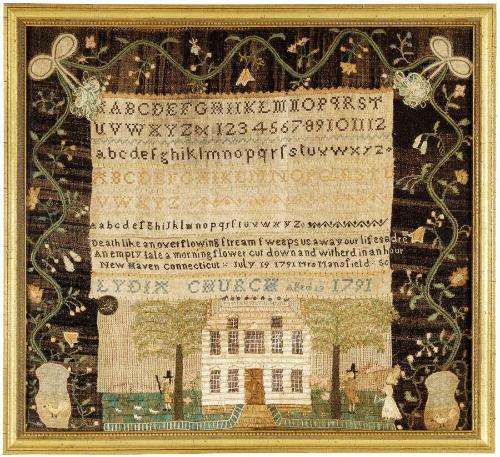 ABCDEFGHIKLMNOPQRST
UVWXYZ 123456789101112
abcdefghiklmnopqrſstuvwxyz
ABCDEFGHIKLMNOPQRSTU
VWXYZ
abcdefghijklmnopqrſstuvwxyz
Death like an overflowing ſtream ſweeps us away our lifes a dre
An empty tale a morning flower cut down and witherd in an hour
New Haven Connecticut July 19 1791 Mrs Mansfield Sc
LYDIA CHURCH Aged 13 1791